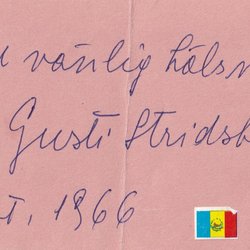 d vänlig hälsn
Gusti Stridsb
t, 1966